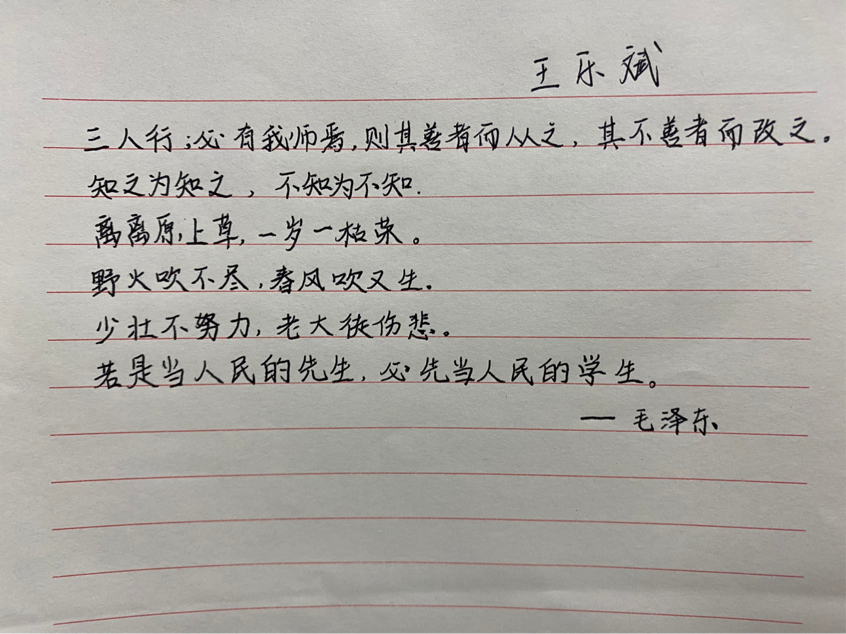 王乐斌
三人行；必有我师焉，则其善者而从之，其不善者而改之。
知之为知之，不知为不知.
离离原上草，一岁一枯荣。
野火吹不尽，春风吹又生.
少壮不努力，老大徒伤悲。
若是当人民的先生，必先当人民的学生。
— 毛泽东